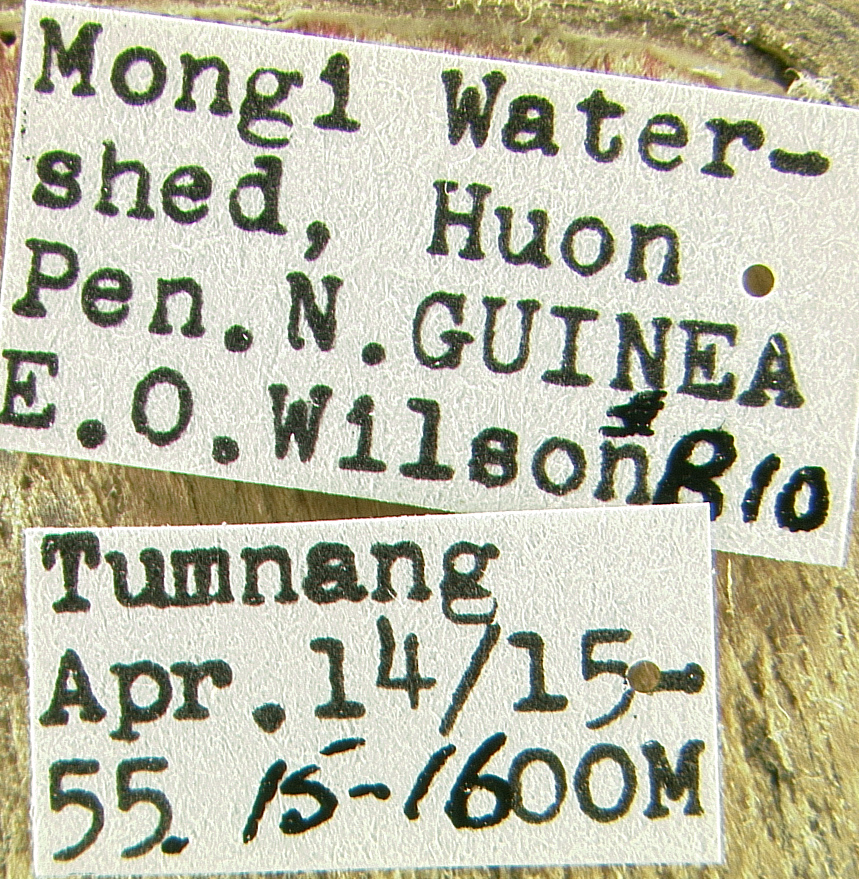 Mongi Water-
shed, Huon
Pen.N.GUINEA
E.O.Wilson 810
Tumnang
Apr.14/15-
55. 15-1600M